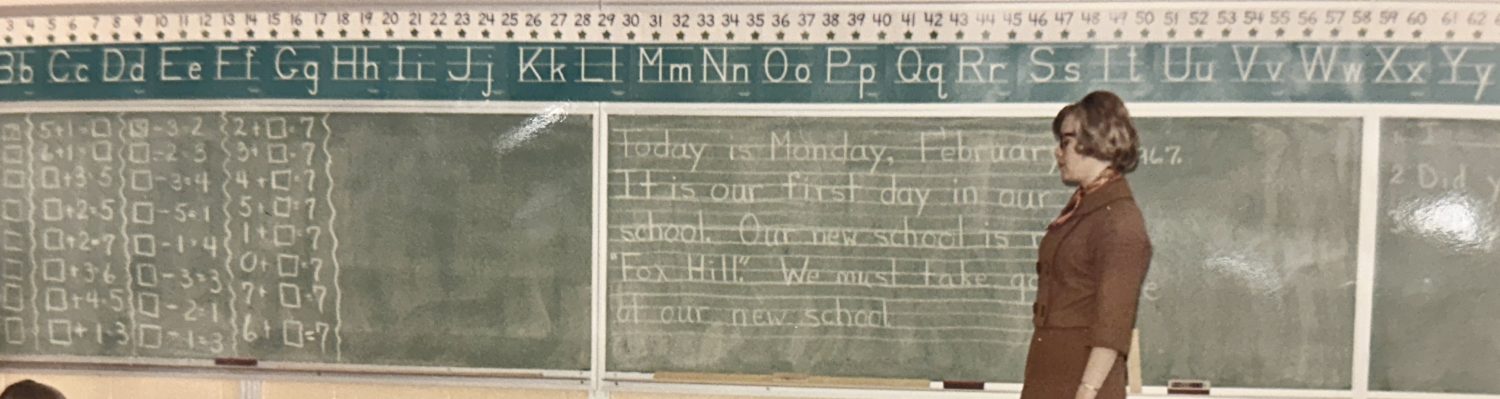 3 4 5 6 7 8 9 10 11 12 13 14 15 16 17 18 19 20 21 22 23 24 25 26 27 28 29 30 31 32 33 34 35 36 37 38 39 40 41 42 43 44 45 46 47 48 49 50 51 52 53 54 55 56 57 58 59 60 61 62
Bb Cc Dd Ee Ff Gg Hh Ii Jj Kk Ll Mm Nn Oo Pp Qq Rr Ss Tt Uu Vv Ww Xx Yy
5+1=□ □-3=2 2+□=7
6+1=□ □-2=3 3+□=7
□+3=5 □-3=4 4+□=7
□+2=5 □-5=1 5+□=7
□+2=7 □-1=4 1+□=7
□+3=6 □-3=3 0+□=7
□+4=5 □-2=1 7+□=7
□+1=3 □-1=3 6+□=7
Today is Monday, February 967.
It is our first day in our
school. Our new school is
"Fox Hill." We must take
of our new school
2 Did